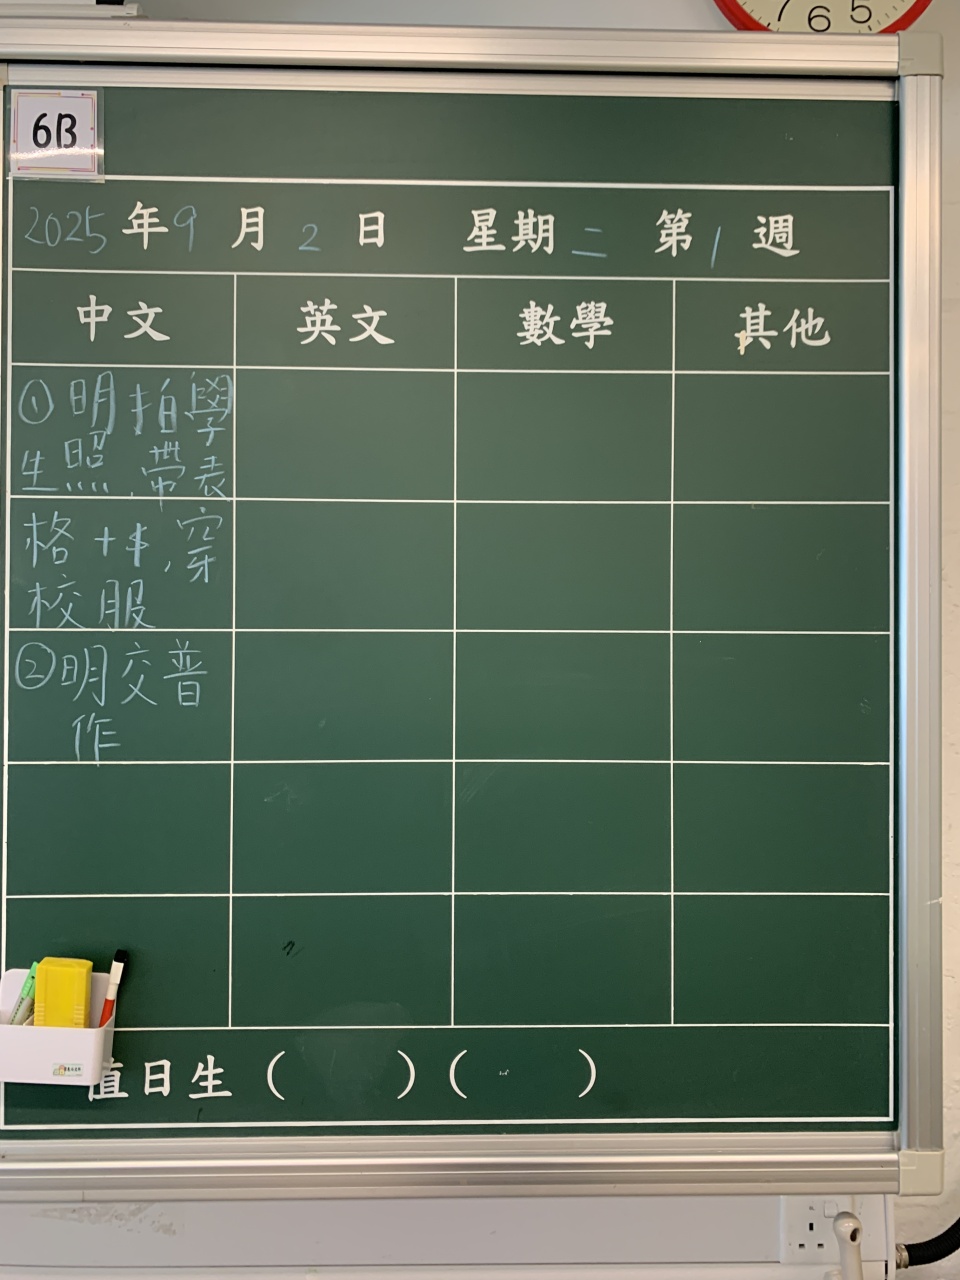 7 6 5
6B
2025年9月2日 星期二 第1週
中文 英文 數學 其他
①明拍學
生照,帶表
格+$,穿
校服
②明交普
作
值日生( )( )